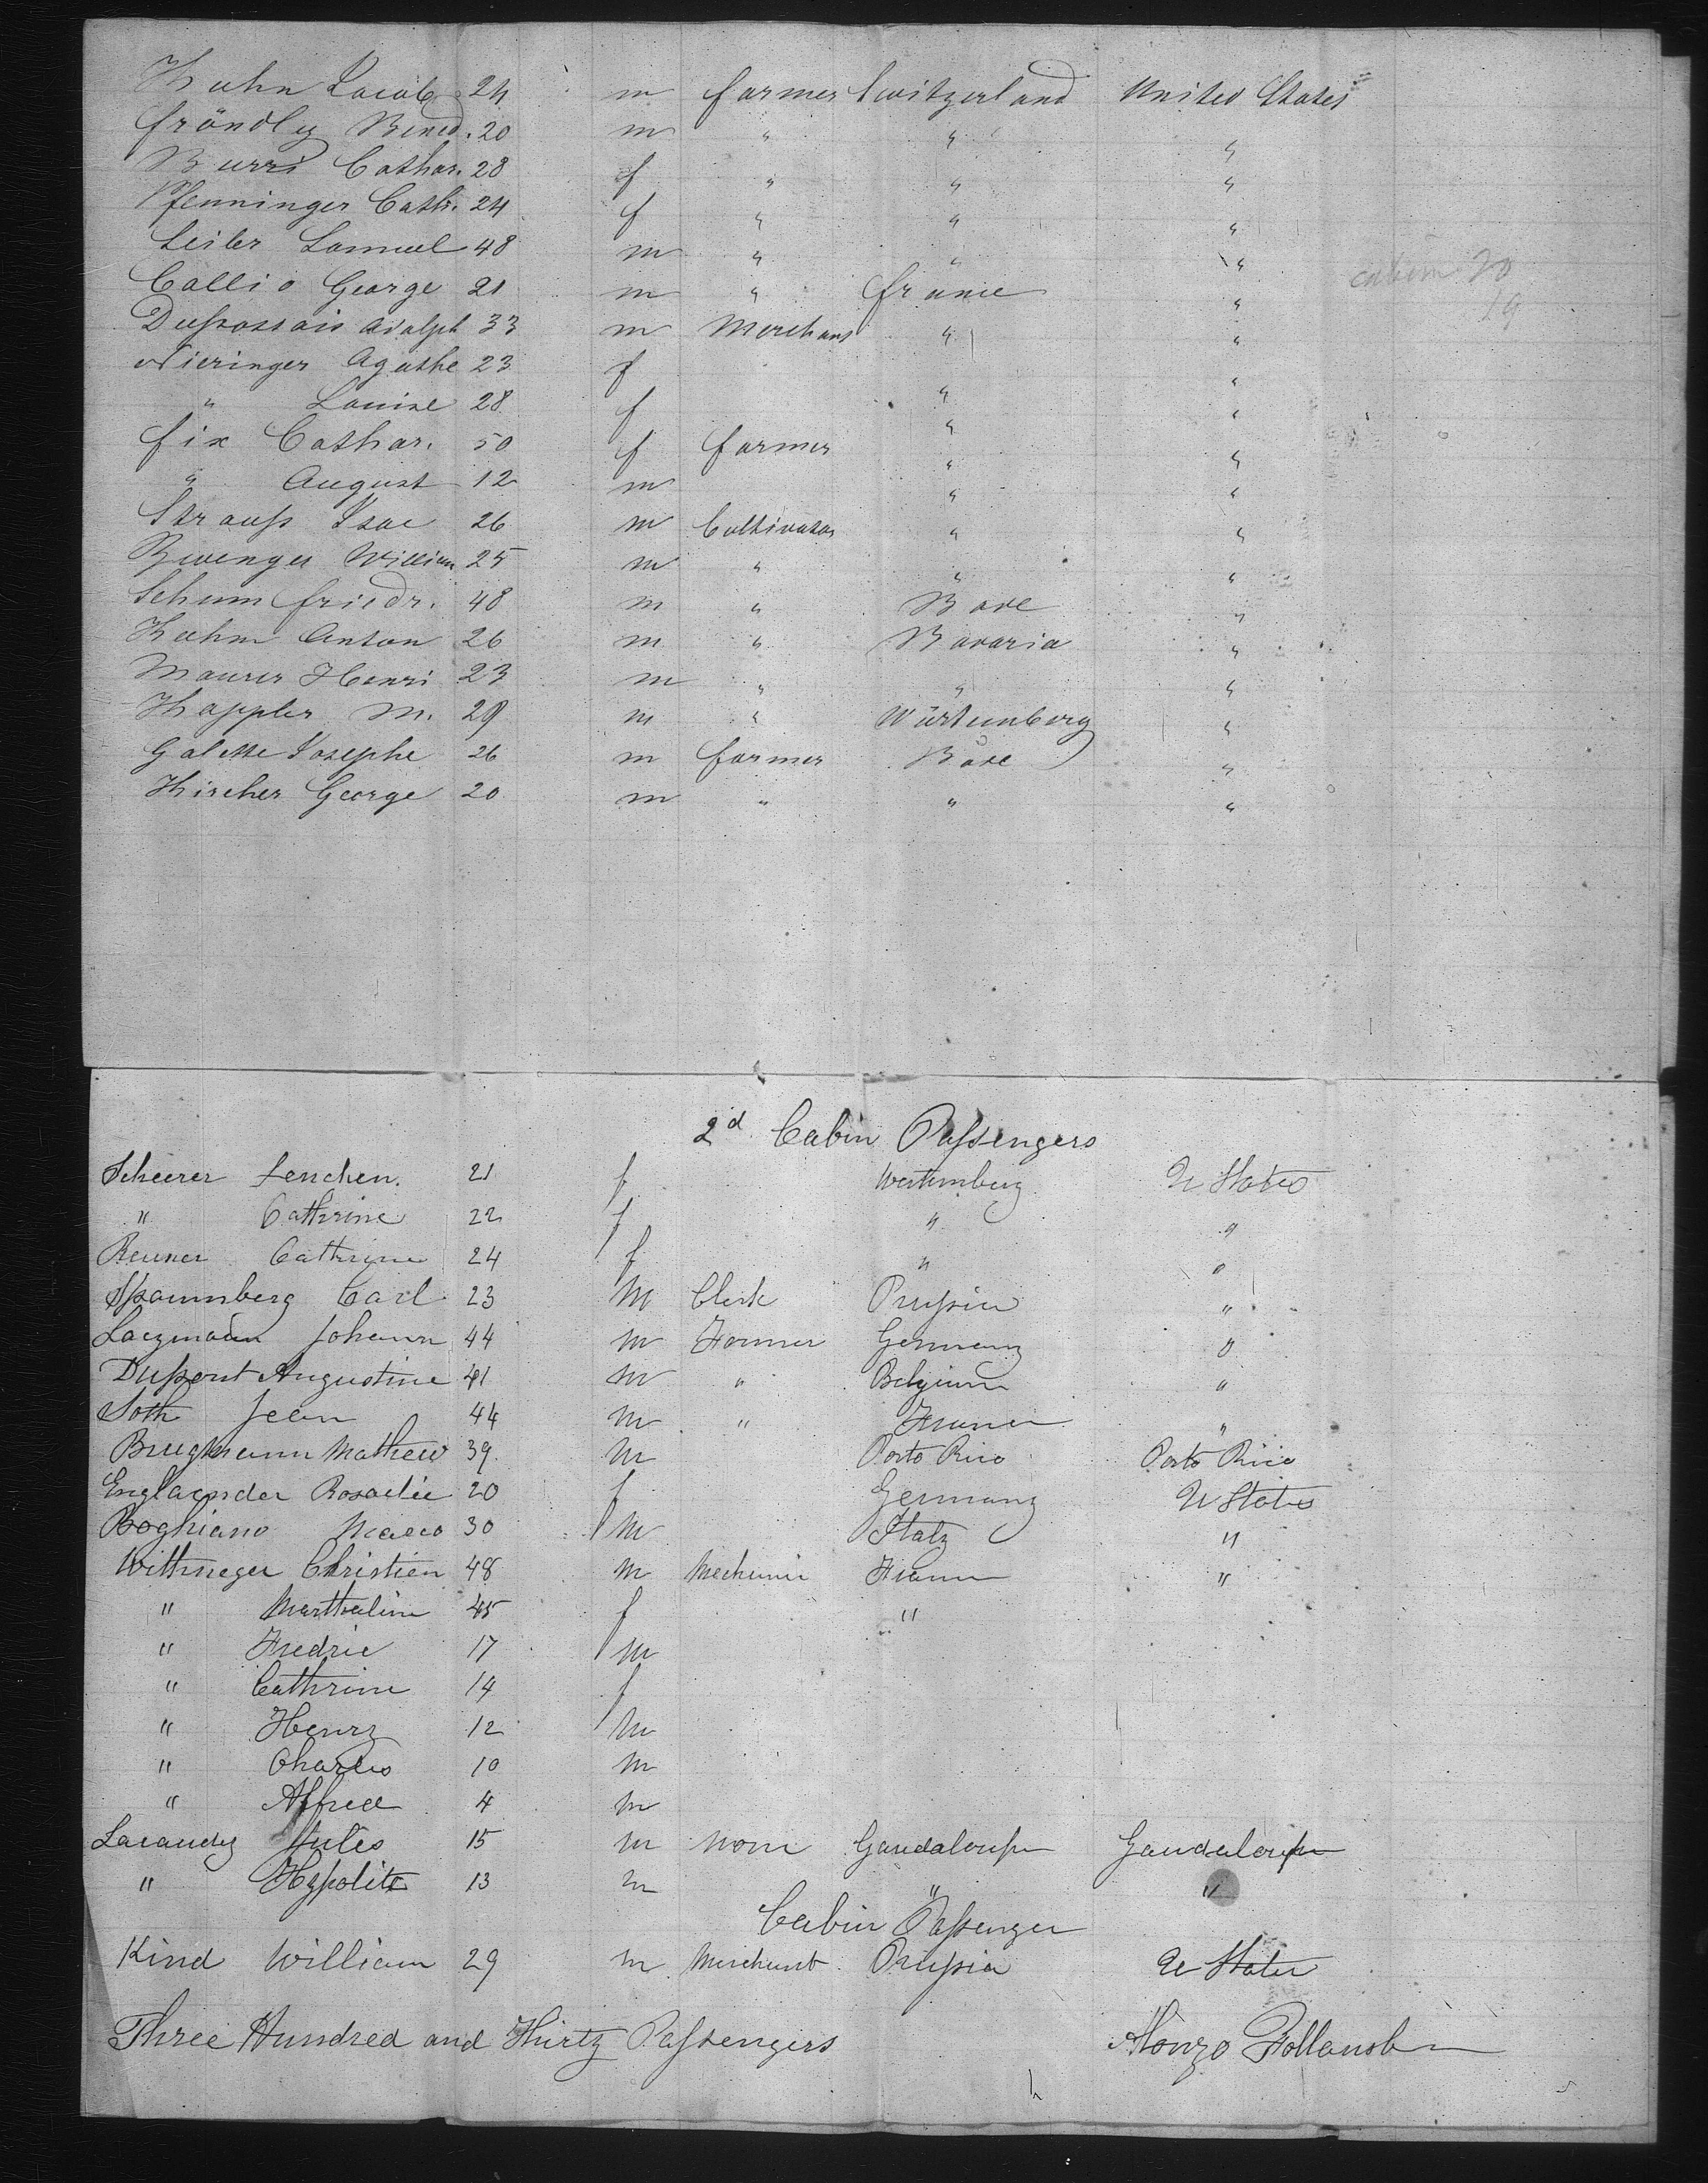 Kuhn Jacob 24 m farmer Switzerland United States
fröndly Bened. 20 m " " "
Burri Cathar. 28 f " " "
Pfenninger Cath. 24 f " " "
Seiler Samuel 48 m " " "
Callio George 21 m " france "
Dupossais Adalph 33 m Merchant " "
Nieringer Agathe 23 f " "
" Louise 28 f " "
fix Cathar. 50 f farmer " "
" August 12 m " "
Strauss Isac 26 m Cultivator " "
William 25 m " " "
Schum friedr. 48 m " Bade "
Kuhm Anton 26 m " Bavaria "
Maurer Henri 23 m " " "
Kappler M. 29 m " Würtemberg "
Galette Josephe 26 m farmer Bade "
Kircher George 20 m " " "
cabin 20
19
2d Cabin Passengers
Scheerer Lenchen. 21 f Wertemberg U States
" Cathrine 22 f " "
Renner Cathrine 24 f " "
Spannsberg Carl 23 m Clerk Prussia "
Johann 44 m Farmer Germany "
Dupont Augustine 41 m " Belgium "
Soth Jean 44 m " France "
Brugmann Mathew 39 m Porto Rico Porto Rico
Englaender Rosalie 20 f Germany U States
Boghiano Marco 30 m Italy "
Withneger Christien 48 m Mechanic France "
" Marthaline 45 f "
" Fredric 17 m
" Cathrine 14 f
" Henry 12 m
" Charles 10 m
" Alfred 4 m
Lacaudy Jules 15 m none Gaudaloupe Gaudaloupe
" Hypolite 13 m " "
Cabin Passenger
Kind William 29 m Merchant Prussia U States
Three Hundred and Thirty Passengers Alonzo Follansbee